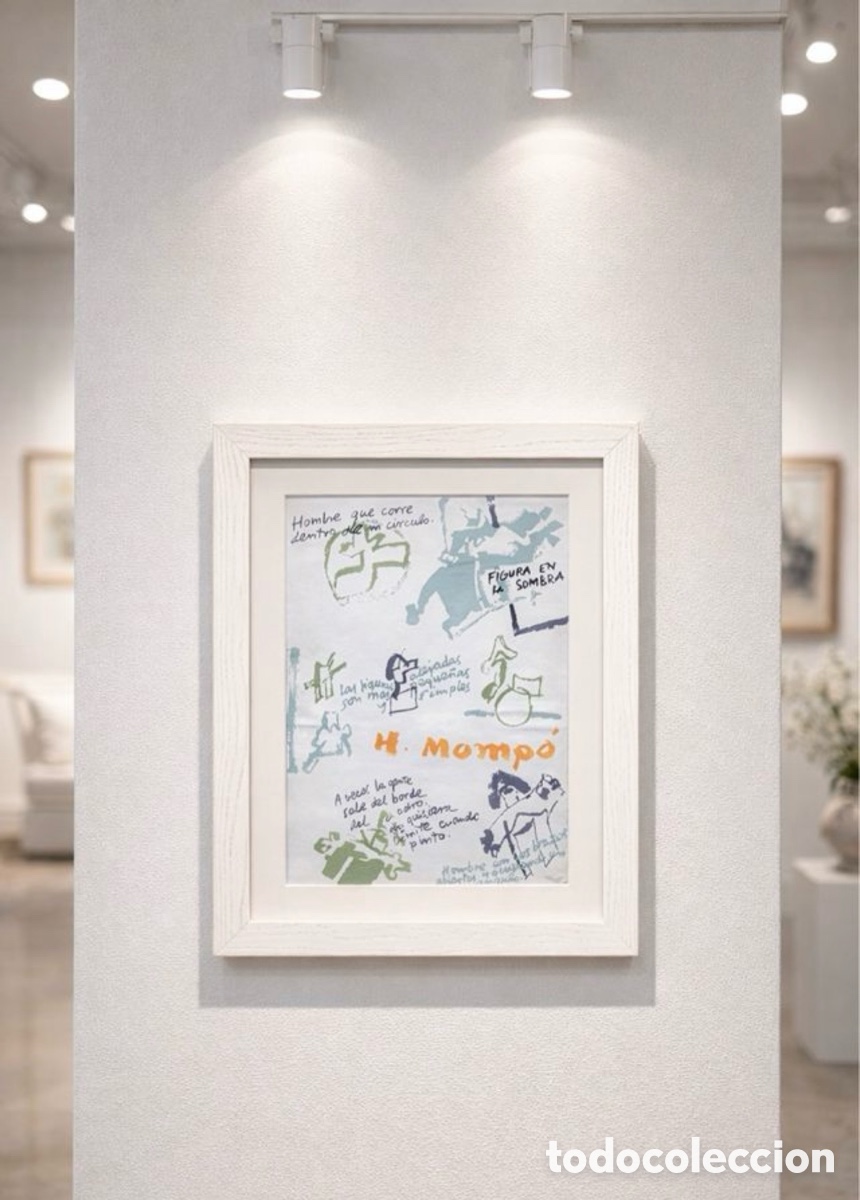 Hombre que corre
dentro de un circulo.
FIGURA EN
la SOMBRA
Las figuras alejadas
son mas pequeñas
y simples
H. Mompó
A veces la gente
sale del borde
del
quisiera
cuando
pinto.
Hombre con los brazos
todocoleccion